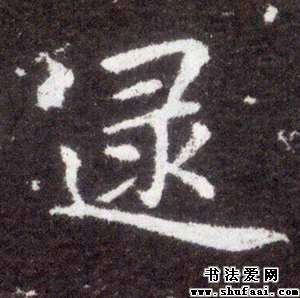 逯
书法爱网
www.shufaai.com